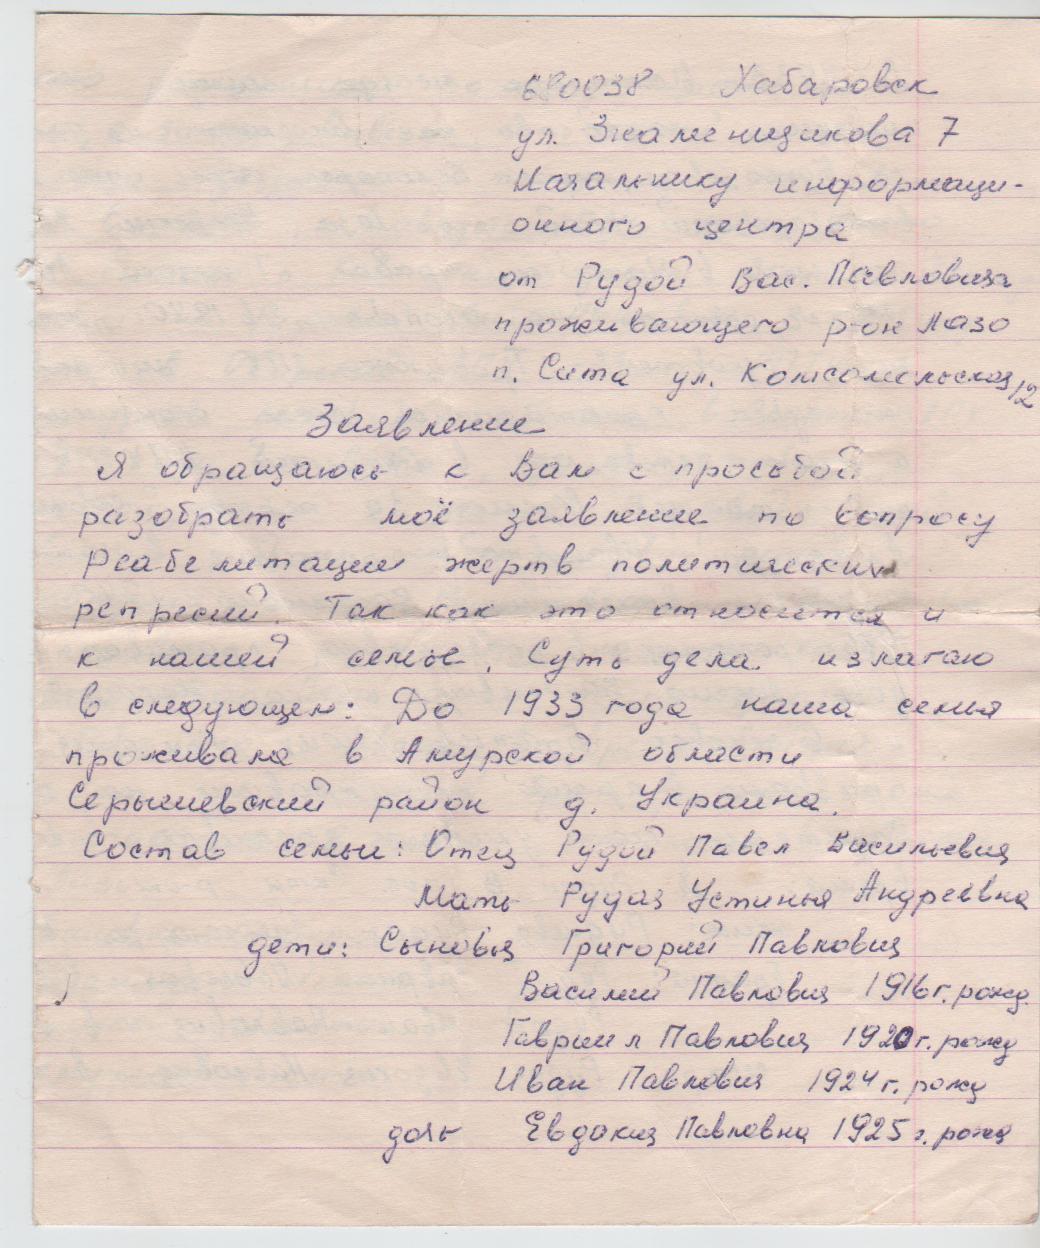 680038 Хабаровск
ул. Знаменщикова 7
Начальнику информаци-
онного центра
от Рудой Вас. Павловича
проживающего р-он Лазо
п. Сита ул. Комсомольская 12
Заявление
Я обращаюсь к Вам с просьбой
разобрать моё заявление по вопросу
Реабелитации жертв политических
репресий. Так как это относится и
к нашей семье. Суть дела излагаю
в следующем: До 1933 года наша семия
проживала в Амурской области
Серышевский район д. Украина.
Состав семьи: Отец Рудой Павел Васильевич
Мать Рудая Устинья Андреевна
дети: Сыновья Григорий Павлович
Василий Павлович 1916 г. рожд.
Гавриил Павлович 1920 г. рожд
Иван Павлович 1924 г. рожд
дочь Евдокия Павловна 1925 г. рожд